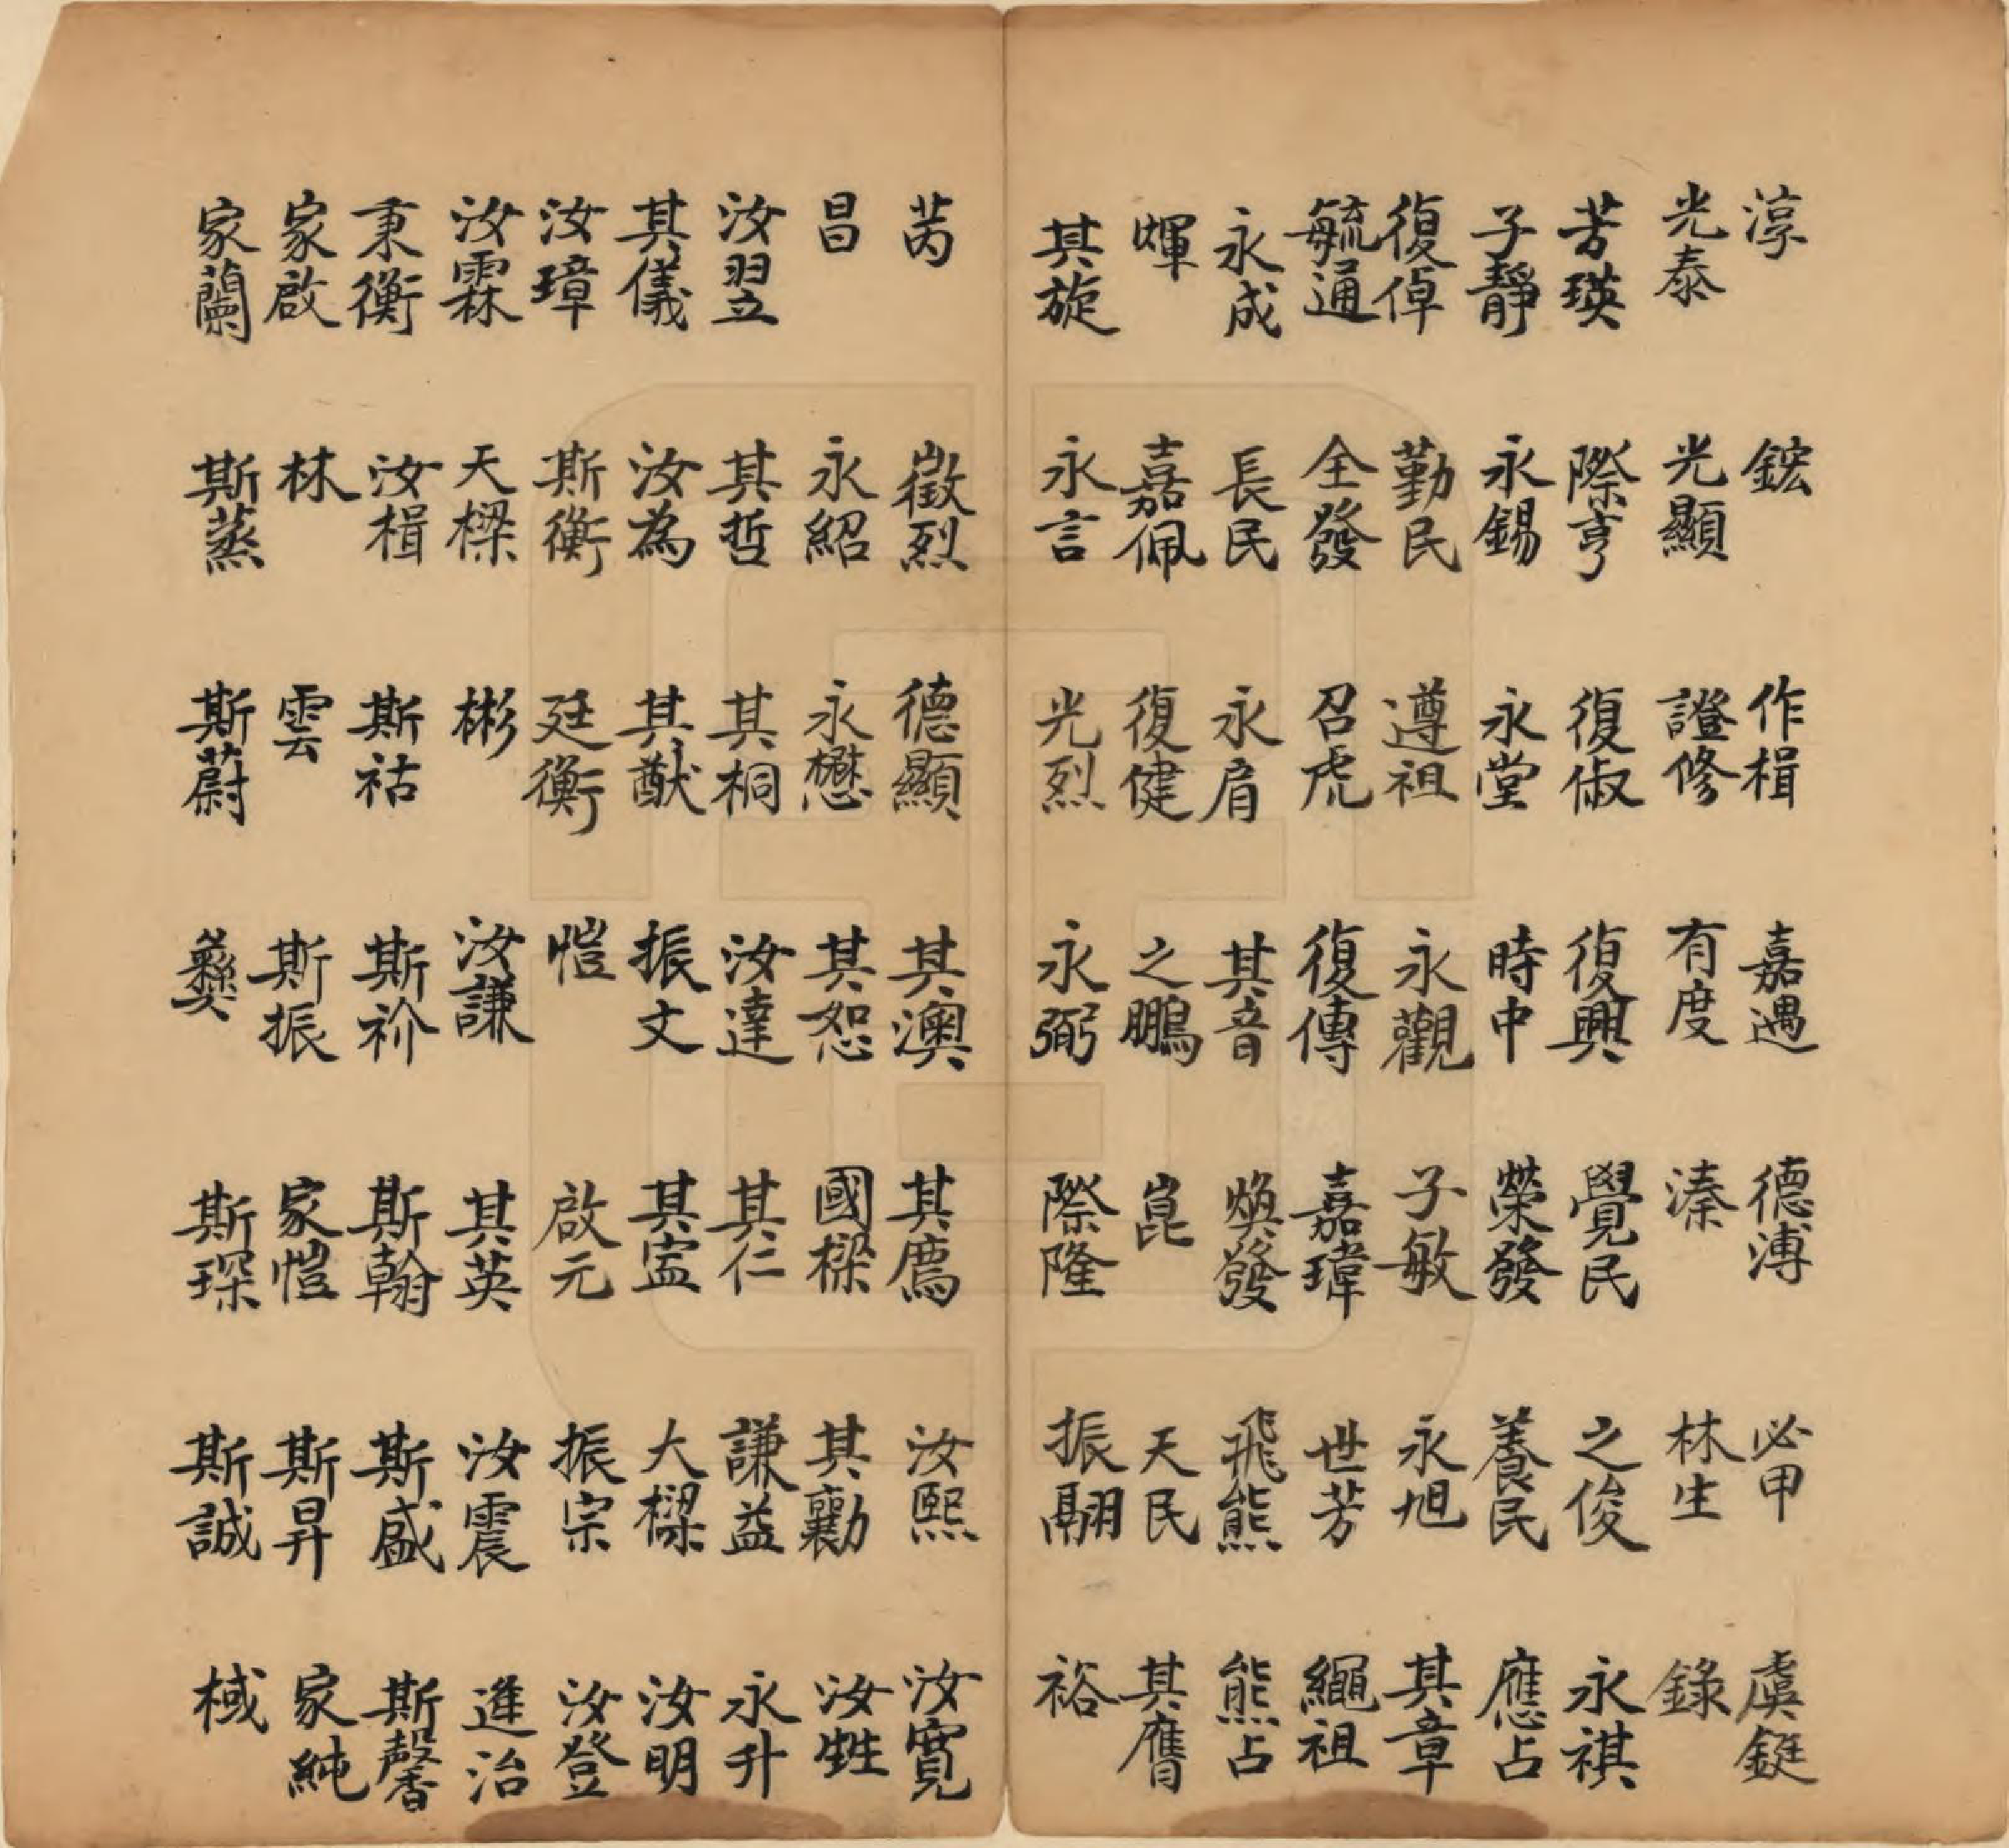 淳 鋐 作楫 嘉遇 德溥 必甲 虞鋌
光泰 光顯 證修 有度 溱 林生 錄
芳瑛 際亨 復俶 復興 覺民 之俊 永祺
子靜 永錫 永堂 時中 榮發 養民 應占
復倬 勤民 遵祖 永觀 子敏 永旭 其章
毓通 全發 召虎 復傳 嘉瑋 世芳 繩祖
永成 長民 永肩 其音 煥發 飛熊 熊占
煇 嘉佩 復健 之鵬 崑 天民 其膺
其旋 永言 光烈 永弼 際隆 振翮 裕
芮 徵烈 德顯 其澳 其廌 汝熙 汝寬
昌 永紹 永懋 其恕 國樑 其勷 汝甡
汝翌 其哲 其桐 汝達 其仁 謙益 永升
其儀 汝為 其猷 振文 其寍 大樑 汝明
汝璋 斯衡 廷衡 愷 啟元 振宗 汝登
汝霖 天樑 彬 汝謙 其英 汝震 進治
秉衡 汝楫 斯祜 斯祄 斯翰 斯盛 斯馨
家啟 林 雲 斯振 家愷 斯昇 家純
家蘭 斯蒸 斯蔚 彝 斯琛 斯誠 棫